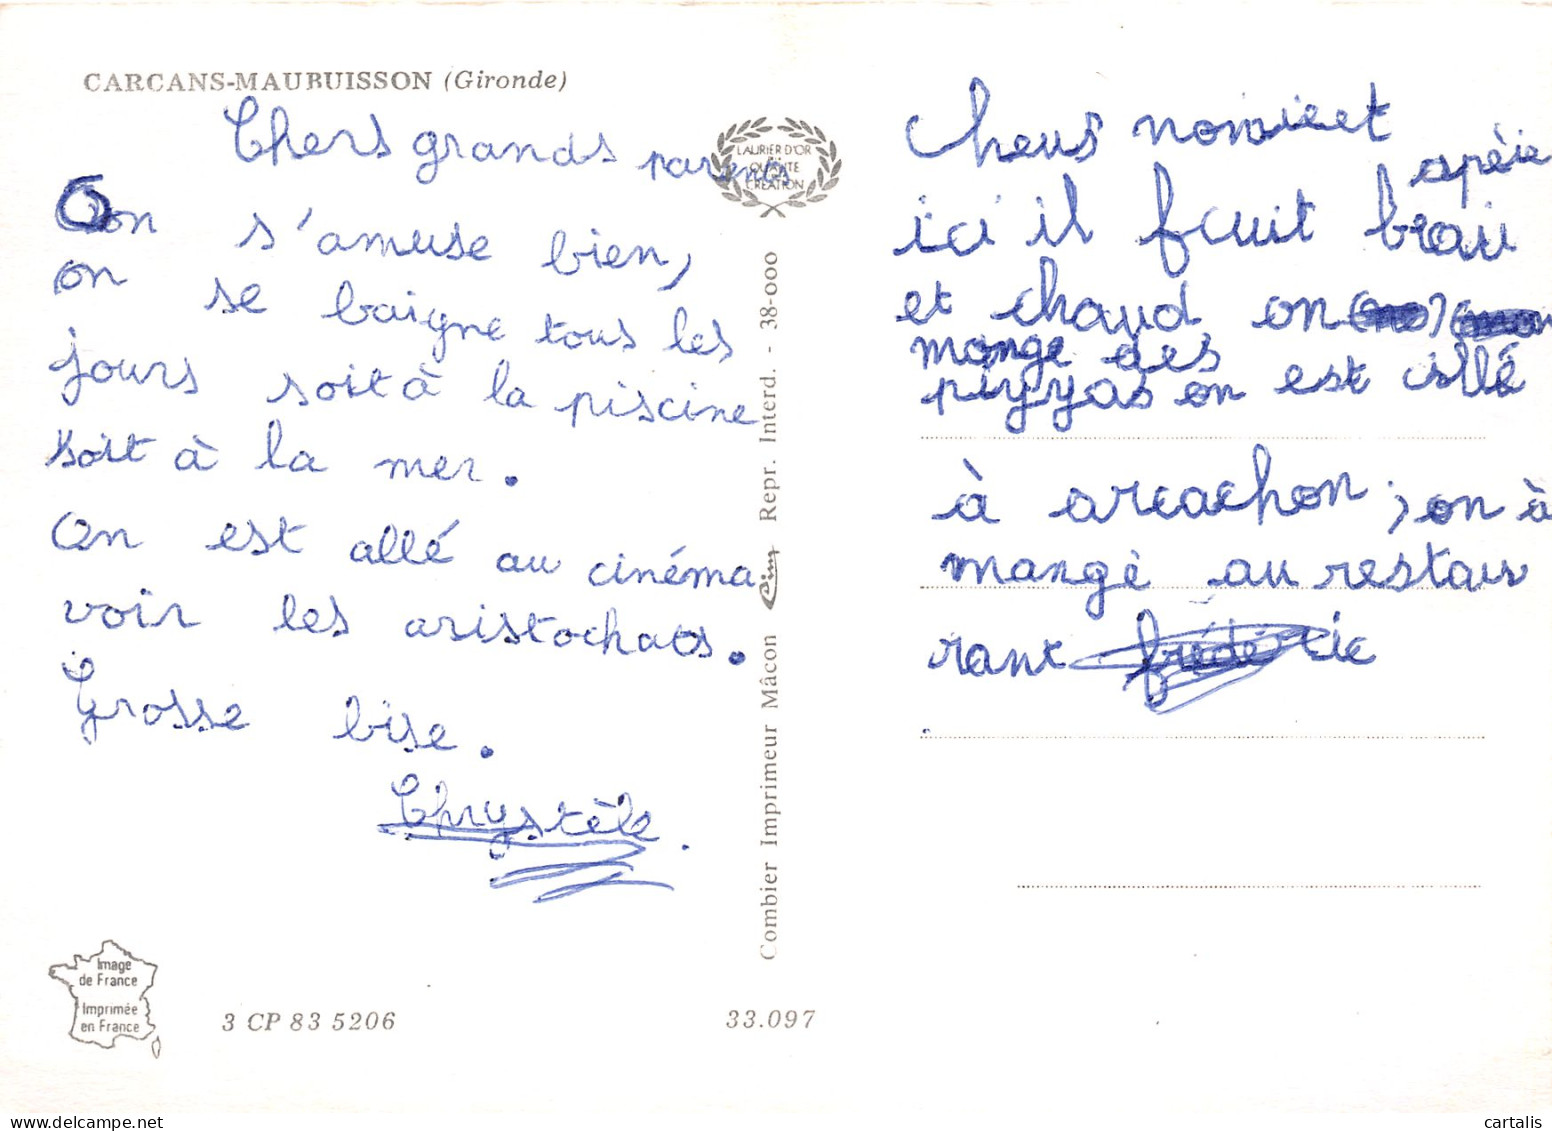 CARCANS-MAUBUISSON (Gironde)
Chers grands parents
On s'amuse bien,
on se baigne tous les
jours soit à la piscine
soit à la mer.
On est allé au cinéma
voir les aristochats.
Grosse bise.
Chrystèle.
LAURIER D'OR
QUALITE
CREATION
Combier Imprimeur Mâcon Cim Repr. Interd. - 38-000
ici il fait beau
et chaud on
mange des
on est allé
à arcachon ; on à
mangé au restau
rant frédéric
Image
de France
Imprimée
en France
3 CP 83 5206
33.097
cartalis